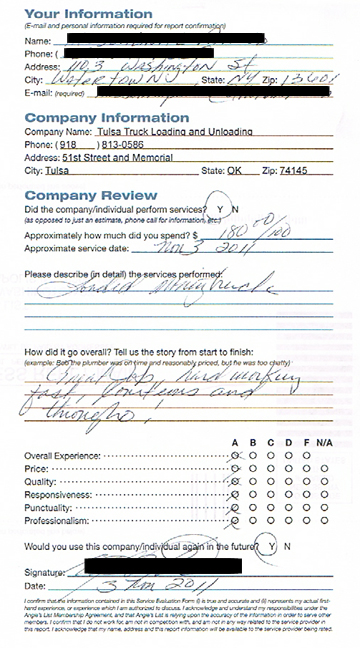 Your Information
(E-mail and personal information required for report confirmation)
Name:
Phone: (
Address: 1103 Washington St
City: Watertown NY State: NY Zip: 13601
E-mail: (required)
Company Information
Company Name: Tulsa Truck Loading and Unloading
Phone: (918 ) 813-0586
Address: 51st Street and Memorial
City: Tulsa State: OK Zip: 74145
Company Review
Did the company/individual perform services? Y N
(as opposed to just an estimate, phone call for information, etc.)
Approximately how much did you spend? $ 180 00/100
Approximate service date: Nov 3 2011
Please describe (in detail) the services performed:
Loaded moving truck
How did it go overall? Tell us the story from start to finish:
(example: Bob the plumber was on time and reasonably priced, but he was too chatty)
Great Job, hard working
fast, courteous and
thorough!
A B C D F N/A
Overall Experience:
Price:
Quality:
Responsiveness:
Punctuality:
Professionalism:
Would you use this company/individual again in the future? Y N
Signature:
Date: 3 2011
I confirm that the information contained in this Service Evaluation Form (i) is true and accurate and (ii) represents my actual first-
hand experience, or experience which I am authorized to discuss. I acknowledge and understand my responsibilities under the
Angie's List Membership Agreement, and that Angie's List is relying upon the accuracy of the information in order to serve other
members. I confirm that I do not work for, am not in competition with, and am not in any way related to the service provider in
this report. I acknowledge that my name, address and this report information will be available to the service provider being rated.